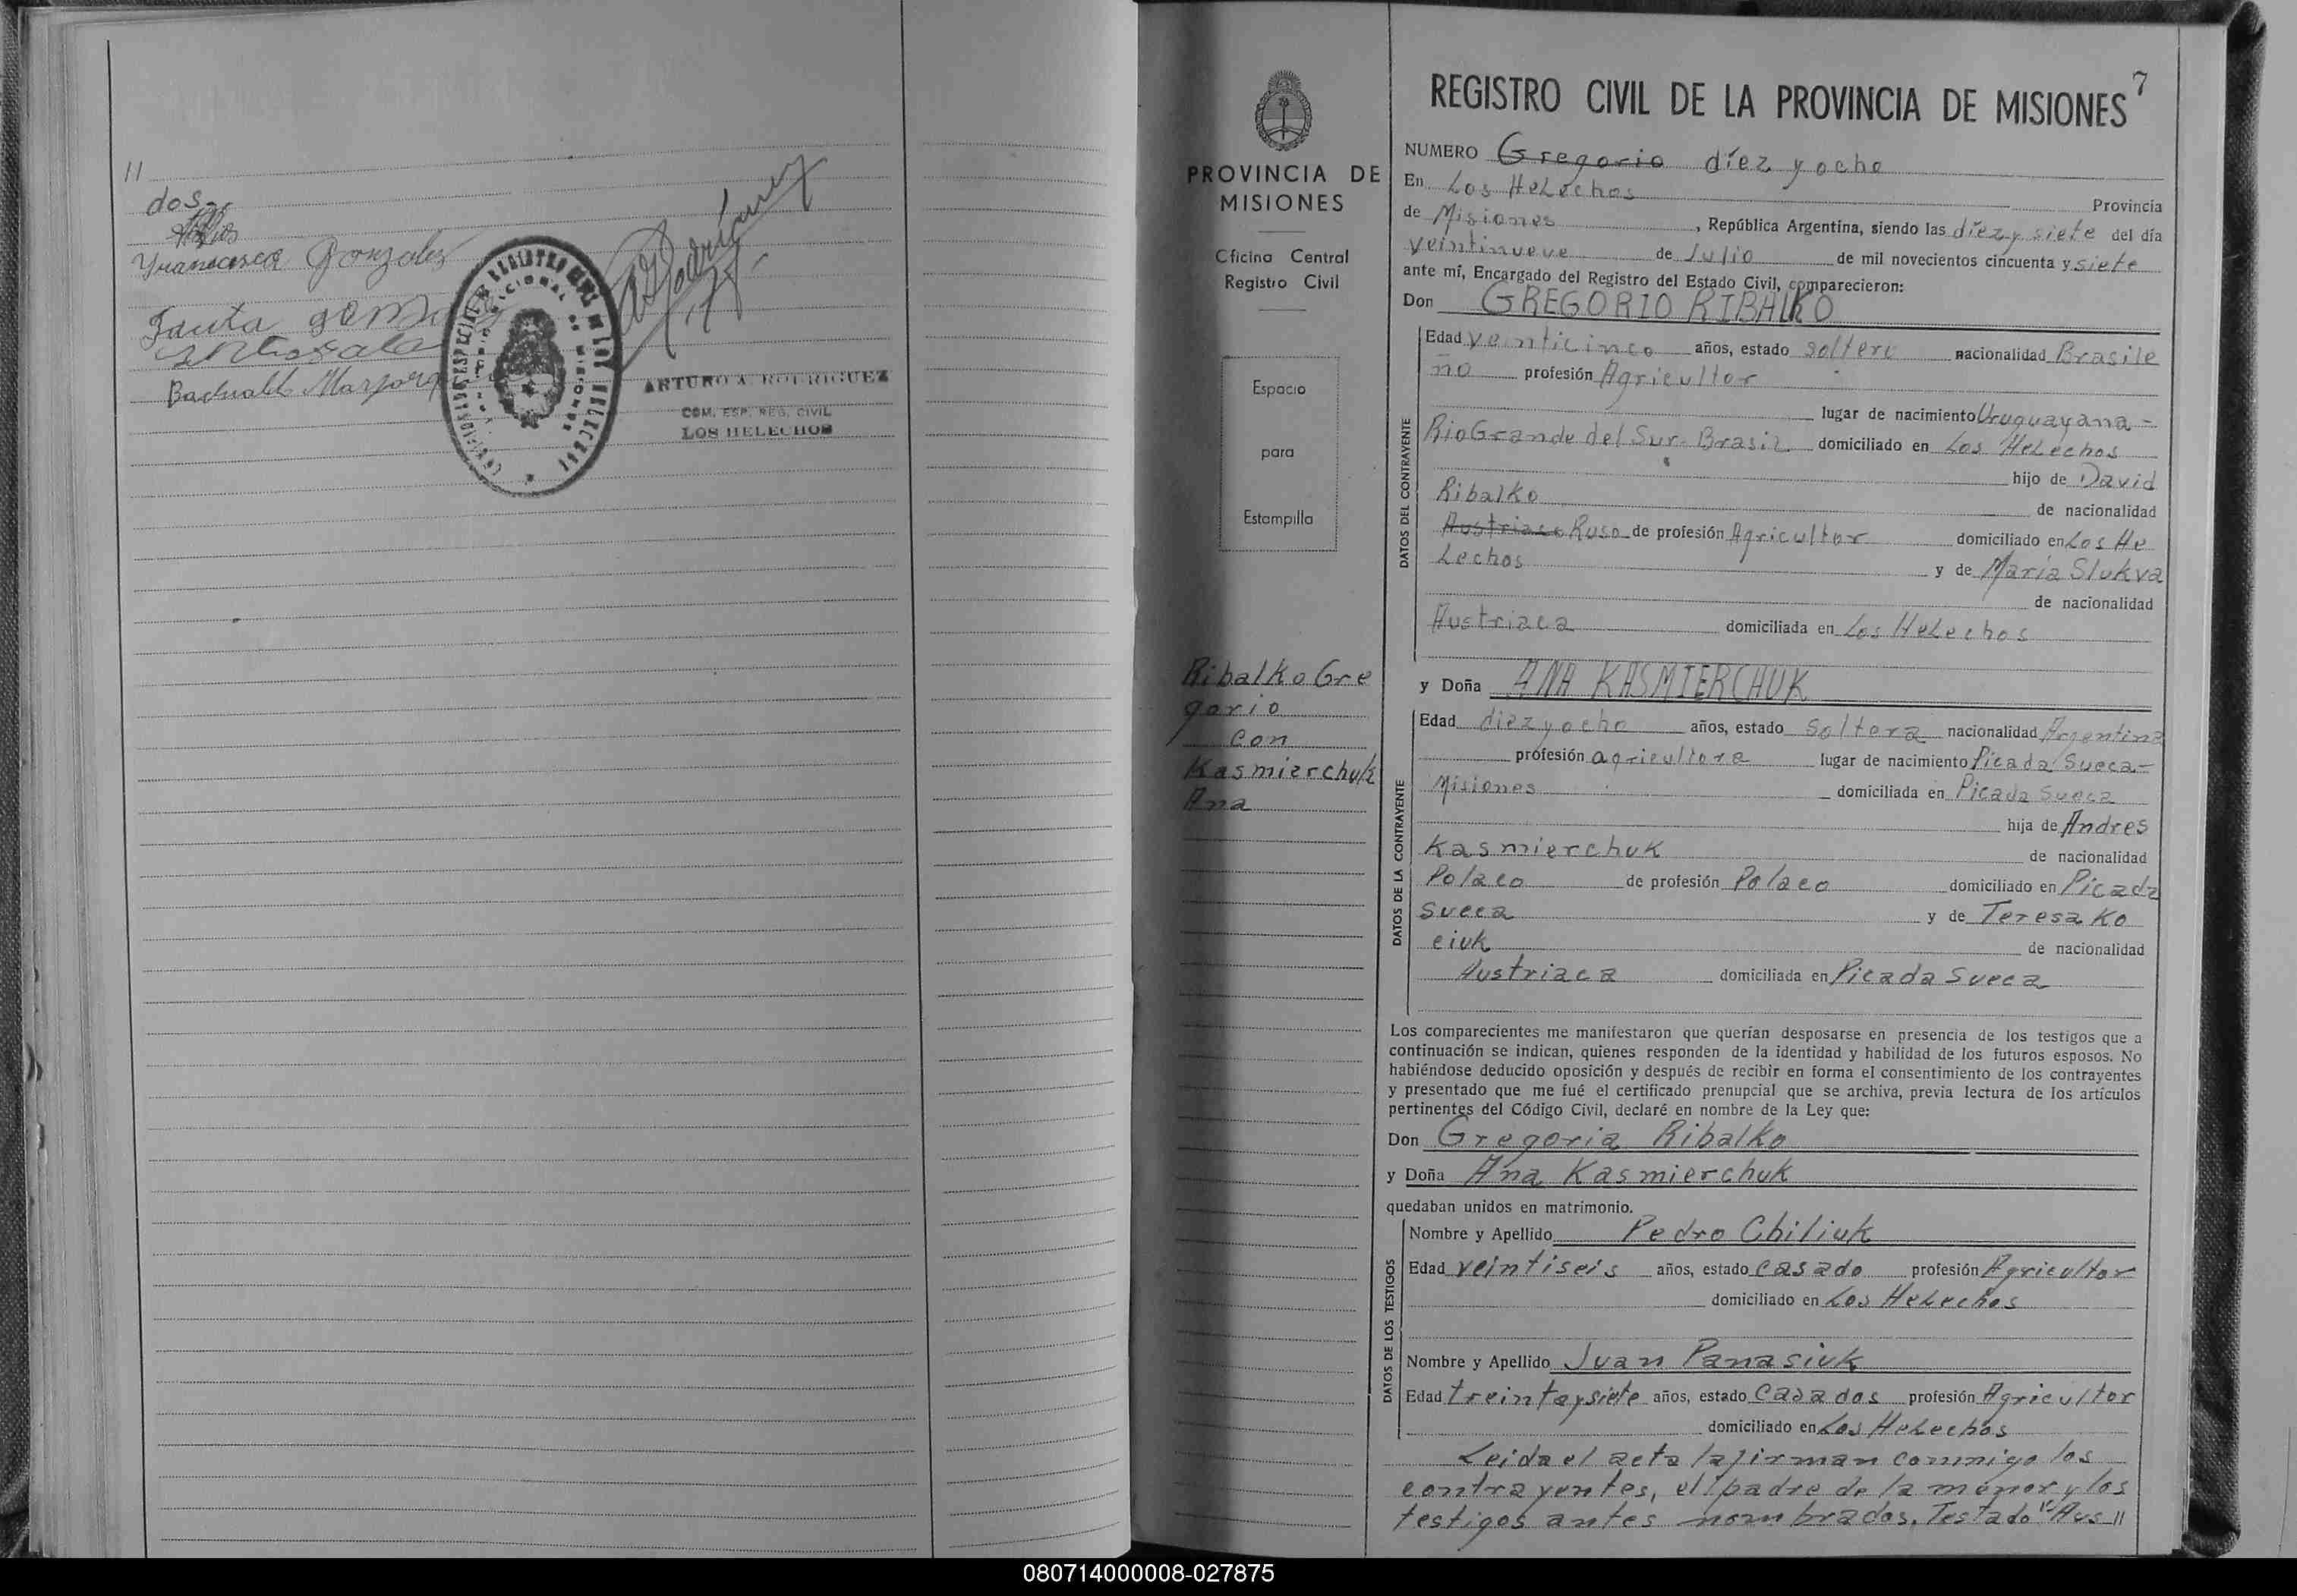 11
dos.-
Gonzalez
Santa
ARTURO A. RODRIGUEZ
COM. ESP. REG. CIVIL
LOS HELECHOS
7
REGISTRO CIVIL DE LA PROVINCIA DE MISIONES
PROVINCIA DE
MISIONES
Oficina Central
Registro Civil
Espacio
para
Estampilla
Ribalko Gre
gorio
con
Kasmierchuk
Ana
NUMERO Gregorio diez y ocho
En Los Helechos Provincia
de Misiones, República Argentina, siendo las diez y siete del día
veintinueve de Julio de mil novecientos cincuenta y siete
ante mí, Encargado del Registro del Estado Civil, comparecieron:
Don GREGORIO RIBALKO
DATOS DEL CONTRAYENTE
Edad veinticinco años, estado soltero nacionalidad Brasile
ño profesión Agricultor
lugar de nacimiento Uruguayana -
Rio Grande del Sur - Brasil domiciliado en Los Helechos
hijo de David
Ribalko de nacionalidad
Austriaco Ruso de profesión Agricultor domiciliado en Los He
lechos y de María Slukva
de nacionalidad
Austriaca domiciliada en Los Helechos
y Doña ANA KASMIERCHUK
DATOS DE LA CONTRAYENTE
Edad diez y ocho años, estado soltera nacionalidad Argentina
profesión agricultora lugar de nacimiento Picada Sueca -
Misiones domiciliada en Picada Sueca
hija de Andres
Kasmierchuk de nacionalidad
Polaco de profesión Polaco domiciliado en Picada
Sueca y de Teresa Ko
ciuk de nacionalidad
Austriaca domiciliada en Picada Sueca
Los comparecientes me manifestaron que querían desposarse en presencia de los testigos que a
continuación se indican, quienes responden de la identidad y habilidad de los futuros esposos. No
habiéndose deducido oposición y después de recibir en forma el consentimiento de los contrayentes
y presentado que me fué el certificado prenupcial que se archiva, previa lectura de los artículos
pertinentes del Código Civil, declaré en nombre de la Ley que:
Don Gregoria Ribalko
y Doña Ana Kasmierchuk
quedaban unidos en matrimonio.
DATOS DE LOS TESTIGOS
Nombre y Apellido Pedro Chiliuk
Edad veintiseis años, estado casado profesión Agricultor
domiciliado en Los Helechos
Nombre y Apellido Juan Panasiuk
Edad treinta y siete años, estado casados profesión Agricultor
domiciliado en Los Helechos
Leida el acta la firman conmigo los
contrayentes, el padre de la menor y los
testigos antes nombrados. Testado "Aus 11
080714000008-027875